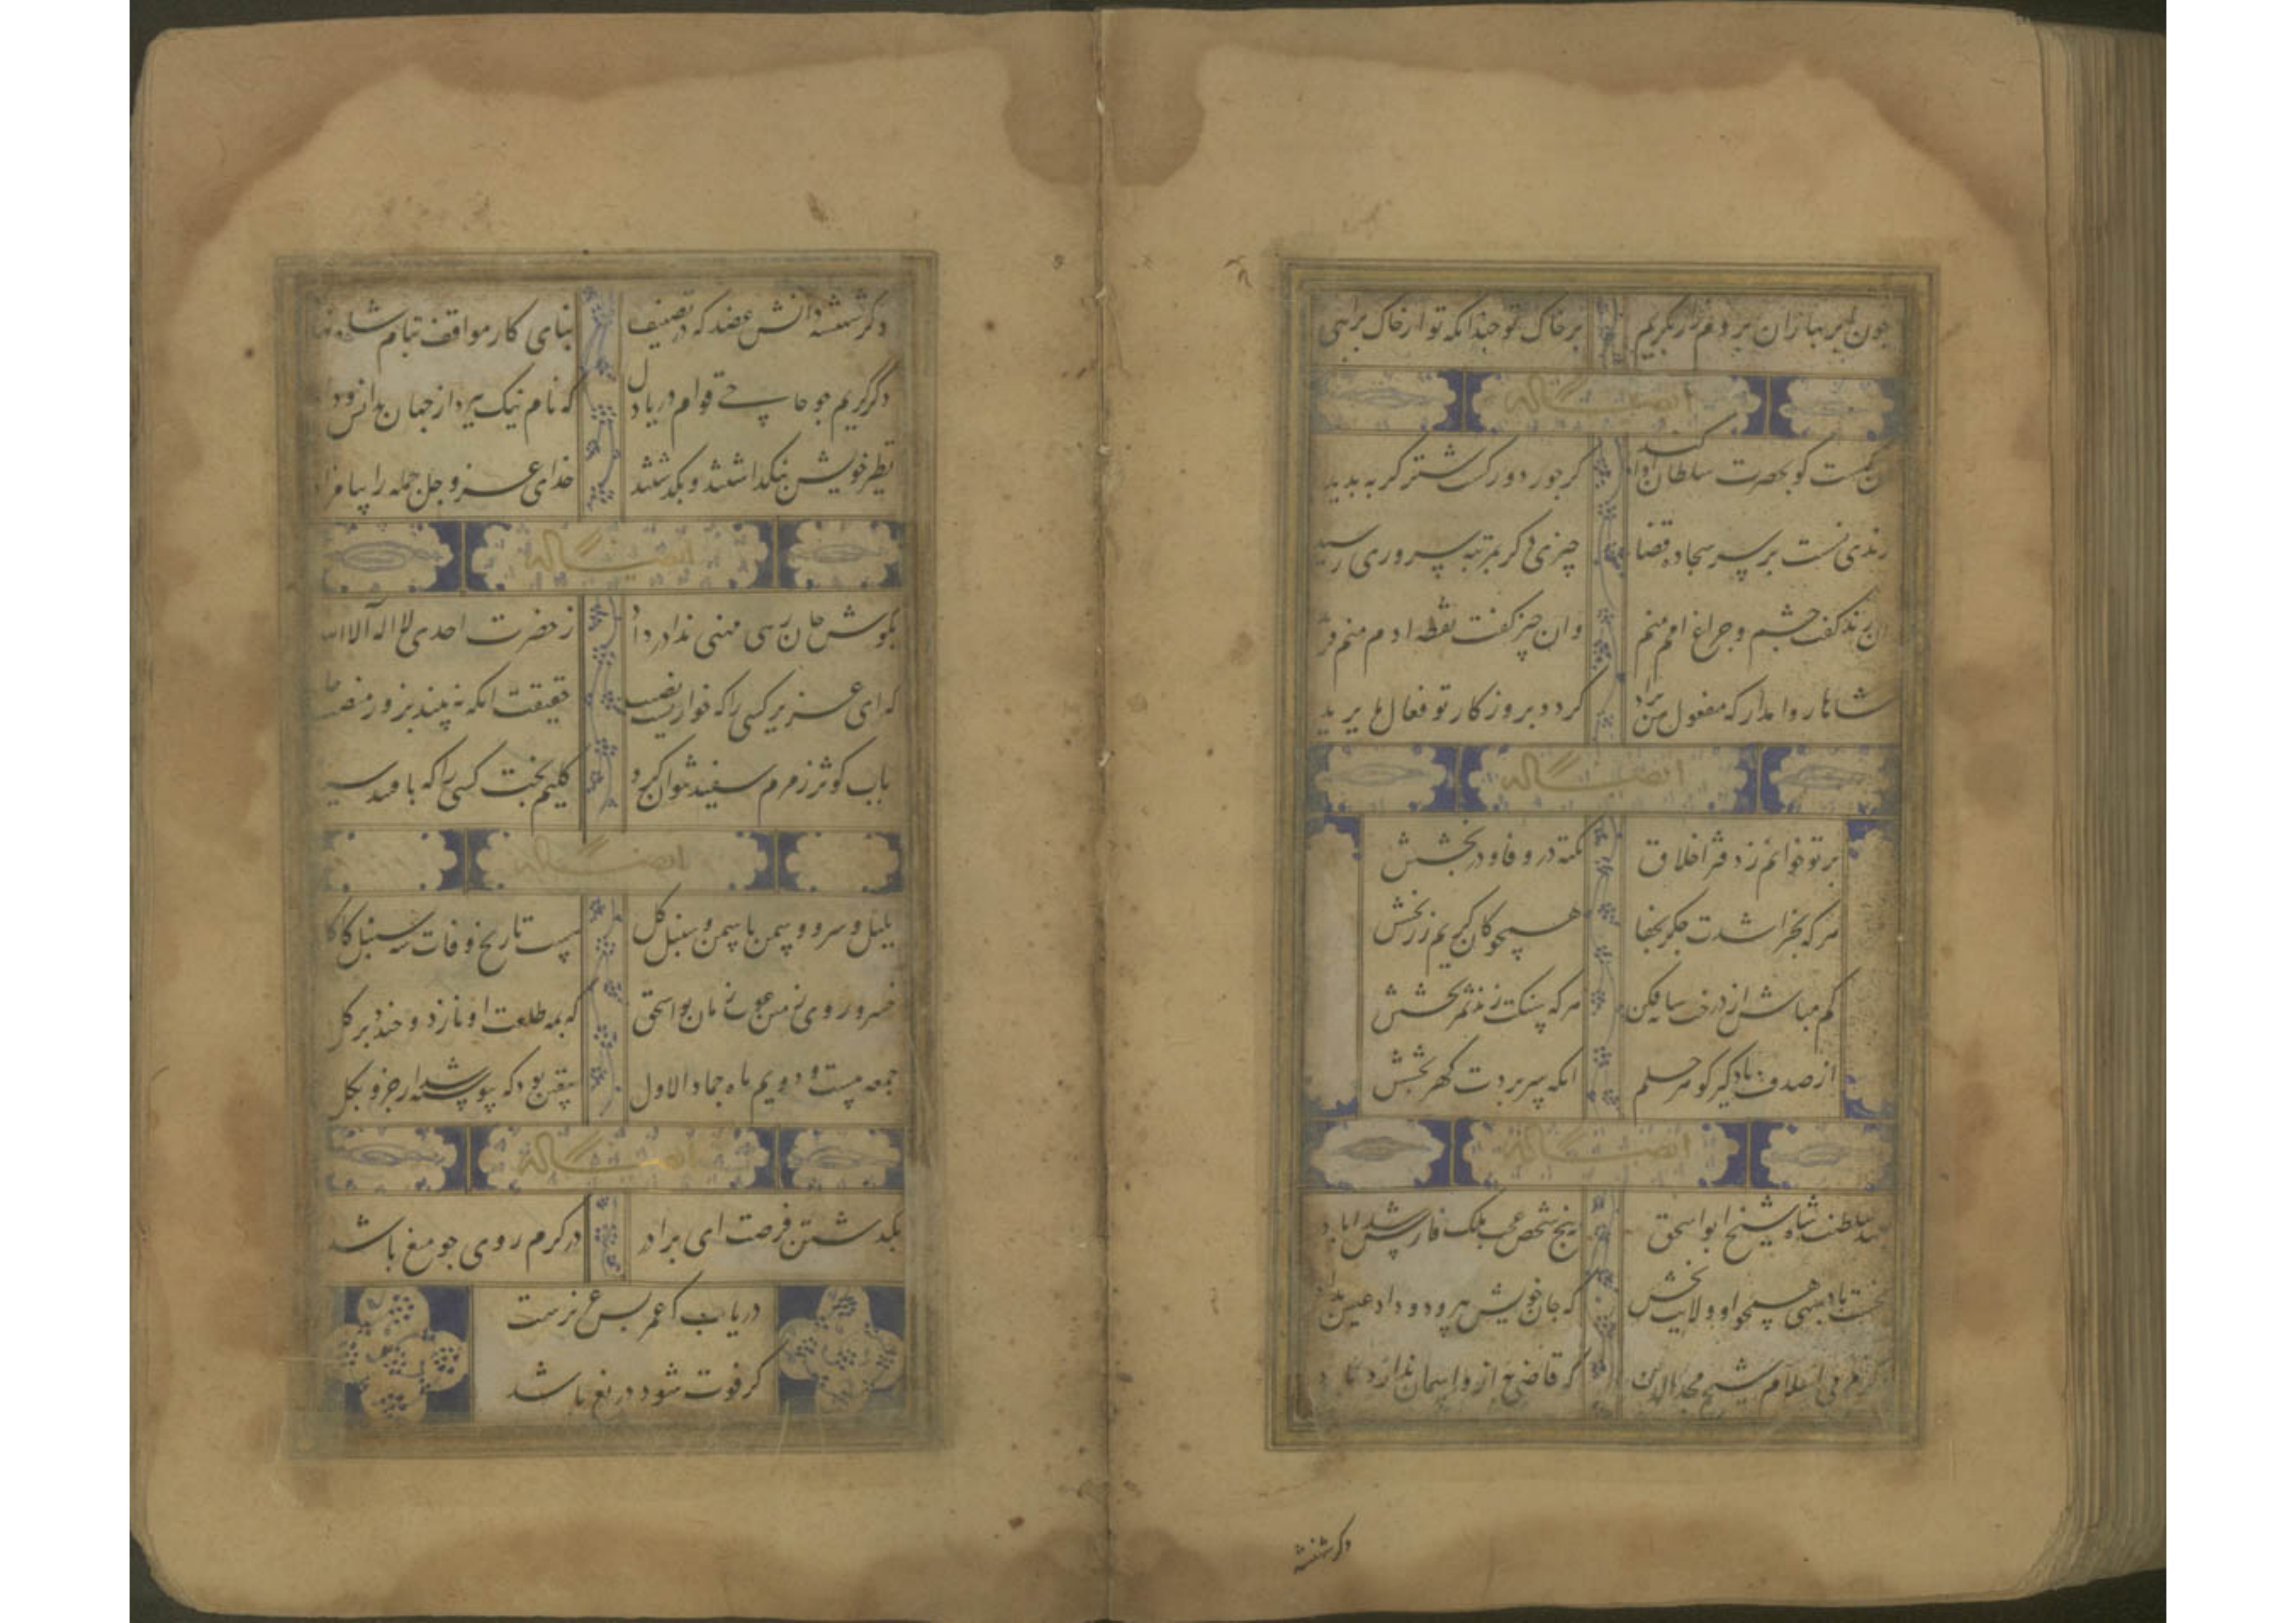 چون ابر بهاران بروم زار بگریم برخاک تو چندانکه تو از خاک برایی
ایضا له
کیست کو بحضرت سلطان ادا کند کز جور دور گشت شتر گربه پدید
رندی نشست بر سر سجاده قضا چیزی دگر بمرتبه سروری رسید
آن رند گفت چشم و چراغ امم منم وان چیز گفت نطفه ادم منم فرید
شاها روا مدار که مفعول من یراد گردد بروزکار تو فعال ما یرید
ایضا له
بر تو خوانم ز دفتر اخلاق نکته در وفا و در بخشش
هرکه بخراشدت جکر بجفا همچو کان کریم زر بخشش
کم مباش از درخت سایه فکن هر که سنکت زند ثمر بخشش
از صدف یاد گیر کوهر حلم انکه سر بردت کهر بخشش
ایضا له
بعهد سلطنت شاه شیخ ابو اسحق پنج شخص عجب ملک فارس شد اباد
نخست پادشهی همچو او ولایت بخش که جان خویش بپرورد و داد عیش بداد
دگر مربی اسلام شیخ مجد الدین که قاضی به ازو اسمان ندارد یاد
دگر شهنشه
دگر شهنشه دانش عضد که در تصنیف بنای کار مواقف بنام شاه نهاد
دگر کریم چو حاجی قوام دریا دل که نام نیک ببرد از جهان بدانش و داد
نظیر خویش بنگذاشتند و بگذشتند خدای عز و جل جمله را بیامرزاد
ایضا له
بکوش جان رهی منهی ندا در داد ز حضرت احدی لا اله الا الله
که ای عزیز کسی را که خواریست نصیب حقیقت انکه نیابد بزور منصب و جاه
باب کوثر و زمزم سفید نتوان کرد کلیم بخت کسی را که بافتند سیاه
ایضا له
بلبل و سرو و سمن یاسمن و سنبل و کل هست تاریخ وفات شه سنبل کاکل
خسرو روی زمین غوث زمان بو اسحق که بمه طلعت او نازد و خندد بر کل
جمعه بیست و دویم ماه جماد الاول
ایضا له
بگذشتن فرصت ای برادر در گرم روی چو میغ باشد
دریاب که عمر بس عزیزست
گر فوت شود دریغ باشد